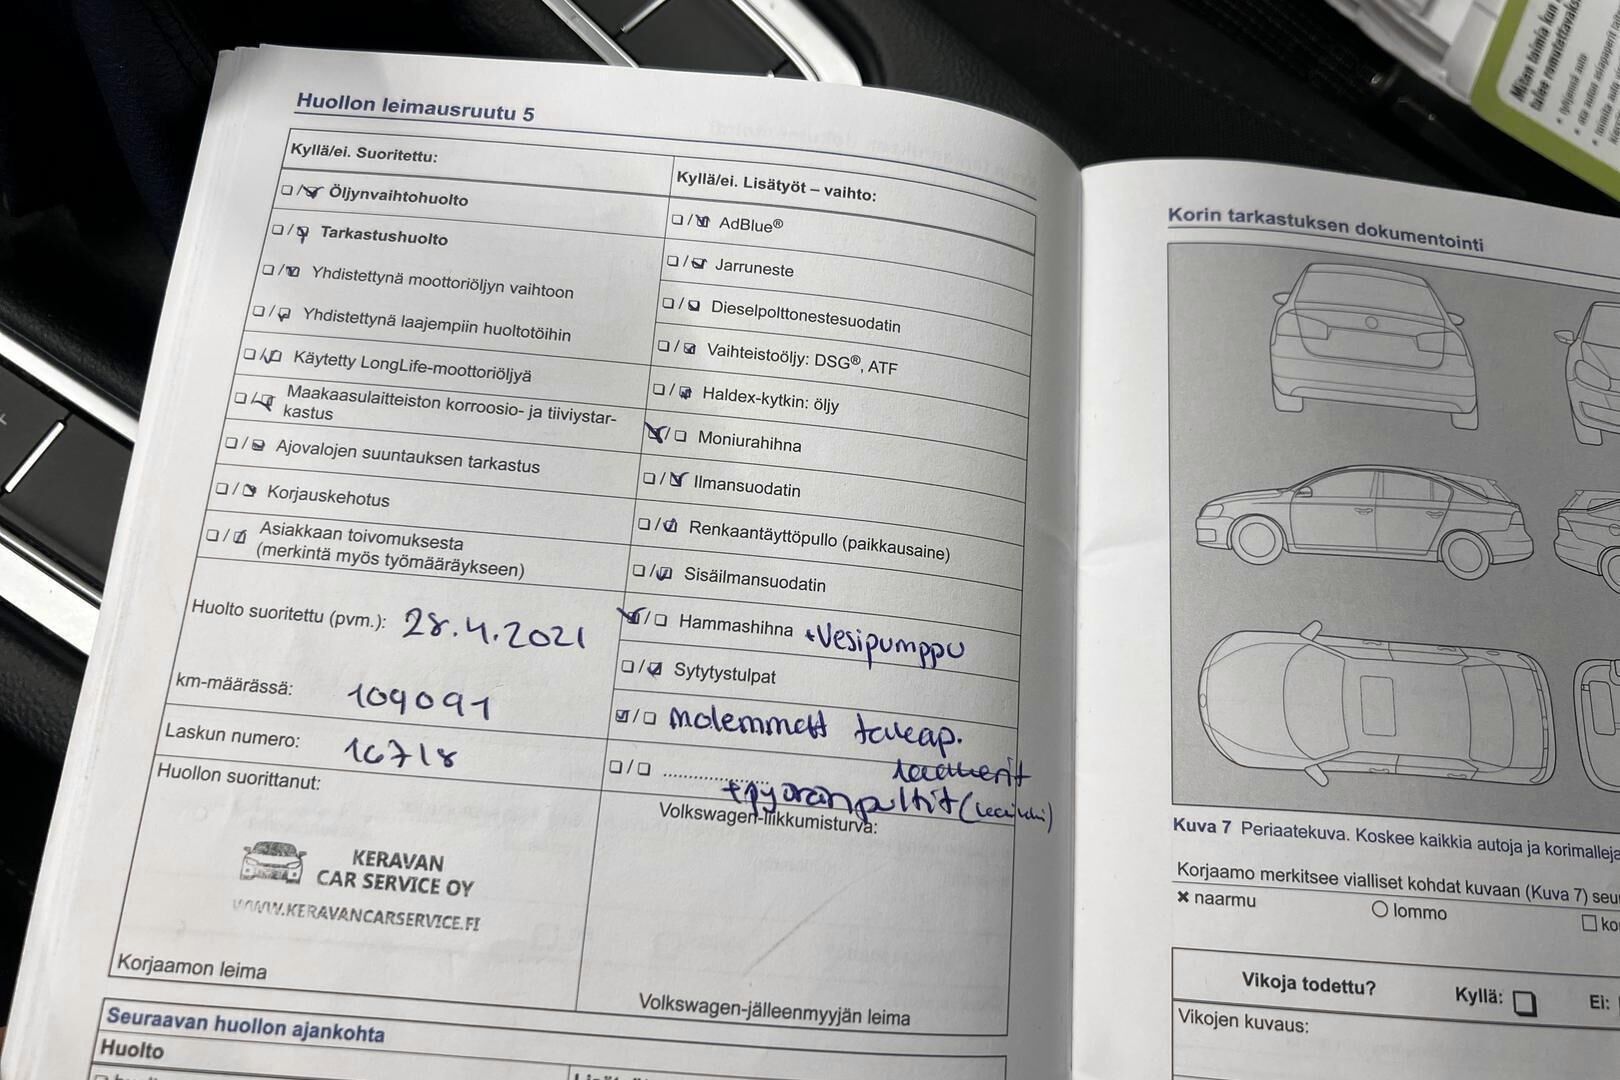 Huollon leimausruutu 5
Kyllä/ei. Suoritettu:
Öljynvaihtohuolto
Tarkastushuolto
Yhdistettynä moottoriöljyn vaihtoon
Yhdistettynä laajempiin huoltotöihin
Käytetty LongLife-moottoriöljyä
Maakaasulaitteiston korroosio- ja tiiviystar-
kastus
Ajovalojen suuntauksen tarkastus
Korjauskehotus
Asiakkaan toivomuksesta
(merkintä myös työmääräykseen)
Huolto suoritettu (pvm.): 28.4.2021
km-määrässä: 109091
Laskun numero: 16718
Huollon suorittanut:
KERAVAN
CAR SERVICE OY
WWW.KERAVANCARSERVICE.FI
Korjaamon leima
Kyllä/ei. Lisätyöt – vaihto:
AdBlue®
Jarruneste
Dieselpolttonestesuodatin
Vaihteistoöljy: DSG®, ATF
Haldex-kytkin: öljy
Moniurahihna
Ilmansuodatin
Renkaantäyttöpullo (paikkausaine)
Sisäilmansuodatin
Hammashihna +Vesipumppu
Sytytystulpat
molemmat takap.
laakerit
+pyöränpultit (kaikki)
Volkswagen-liikkumisturva:
Volkswagen-jälleenmyyjän leima
Seuraavan huollon ajankohta
Huolto
Korin tarkastuksen dokumentointi
Kuva 7 Periaatekuva. Koskee kaikkia autoja ja korimalleja
Korjaamo merkitsee vialliset kohdat kuvaan (Kuva 7)
naarmu
lommo
Vikoja todettu?
Kyllä:
Ei:
Vikojen kuvaus: